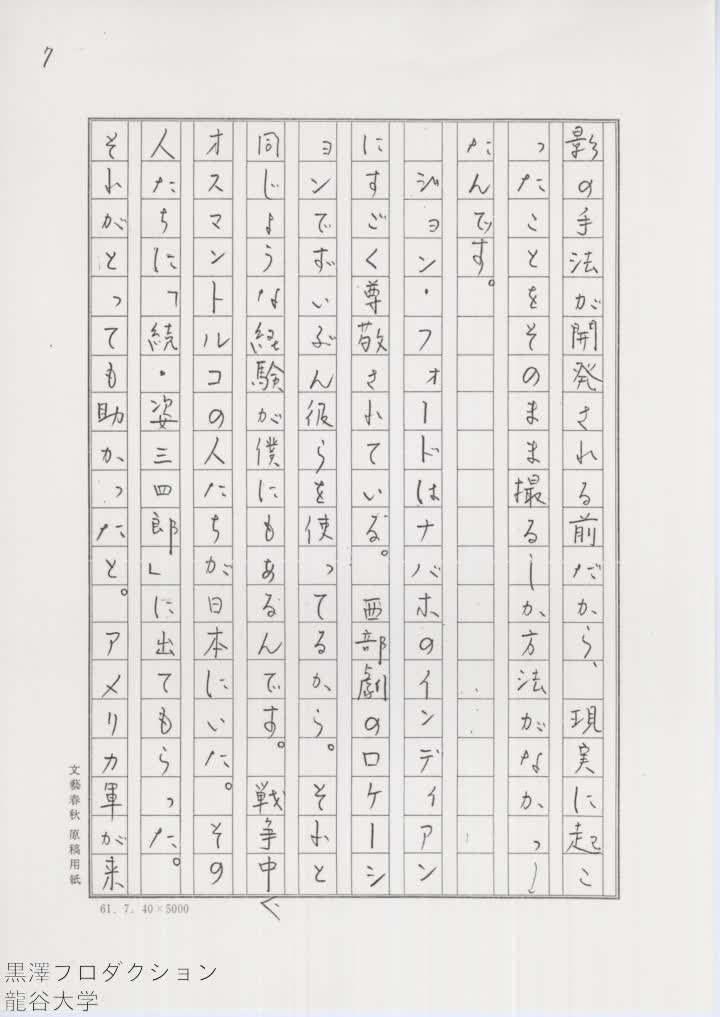 7
影の手法が開発される前だから、現実に起こ
ったことをそのまま撮るしか方法がなかっ
たんです。
ジョン・フォードはナバホのインディアン
にすごく尊敬されている。西部劇のロケーシ
ョンでずいぶん彼らを使ってるから。それと
同じような経験が僕にもあるんです。戦争中に
オスマントルコの人たちが日本にいた。その
人たちに「続・姿三四郎」に出てもらった。
それがとっても助かったと。アメリカ軍が来
文藝春秋 原稿用紙
61. 7. 40×5000
黒澤プロダクション
龍谷大学